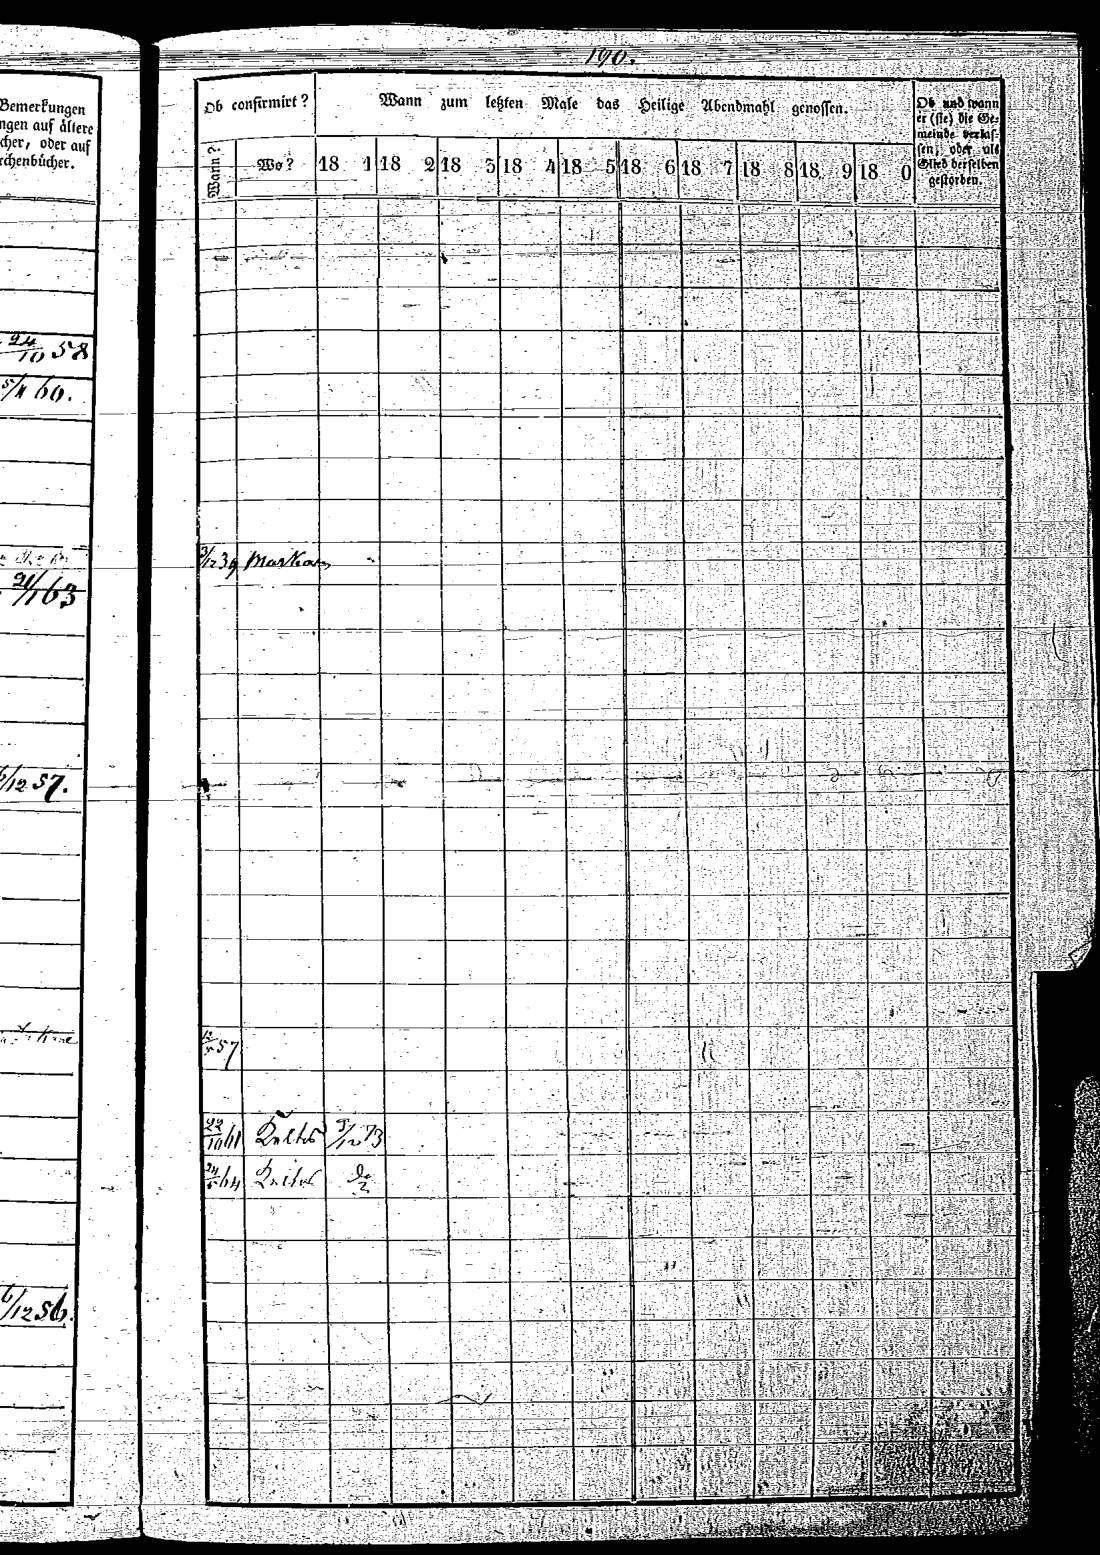 190.
Bemerkungen
ngen auf ältere
cher, oder auf
rchenbücher.
24/10 58
5/11 60.
21/1 63
6/12 57.
6/12 56.
Ob confirmirt? Wann zum letzten Male das Heilige Abendmahl genossen. Ob und wann
er (sie) die Ge-
meinde verlas-
sen, oder als
Glied derselben
gestorben.
Wann? Wo? 18 1 18 2 18 3 18 4 18 5 18 6 18 7 18 8 18 9 18 0
3/12 39
57
22/10 61 3/12 73
64